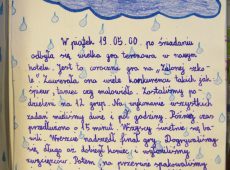 W piątek 19.05.00. po śniadaniu
odbyła się wielka gra terenowa w naszym
hotelu. Jest to coroczna gra na "Zielonej szko-
le". Zawierała ona wiele konkurencji takich jak
śpiew, taniec czy malowidło. Zostaliśmy po-
dzieleni na 12 grup. Na wykonanie wszystkich
zadań mieliśmy dwie i pół godziny. Później czas
przedłużono o 15 minut. Wszyscy świetnie się ba-
wili. Wreszcie nadszedł finał gry. Dogrywaliśmy
się długo aż dobiegł koniec, i wyłoniliśmy
zwycięzców. Potem na przerwie spakowaliśmy